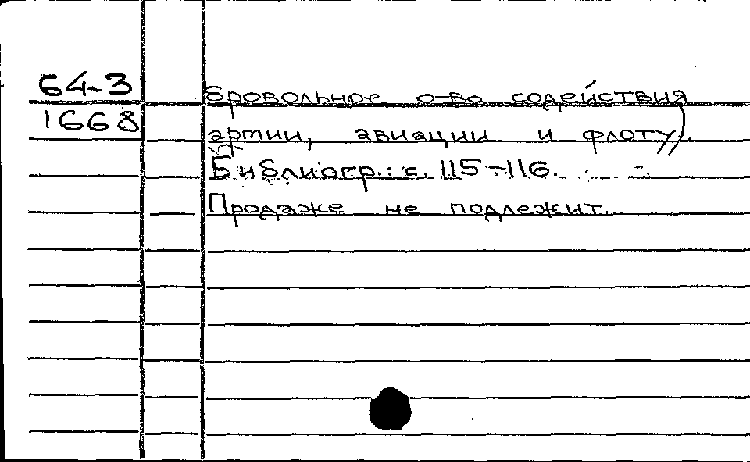 64-3
1668
бровольное о-во содействия
армии, авиации и флоту).
Библиогр.: с. 115-116.
Продаже не подлежит.